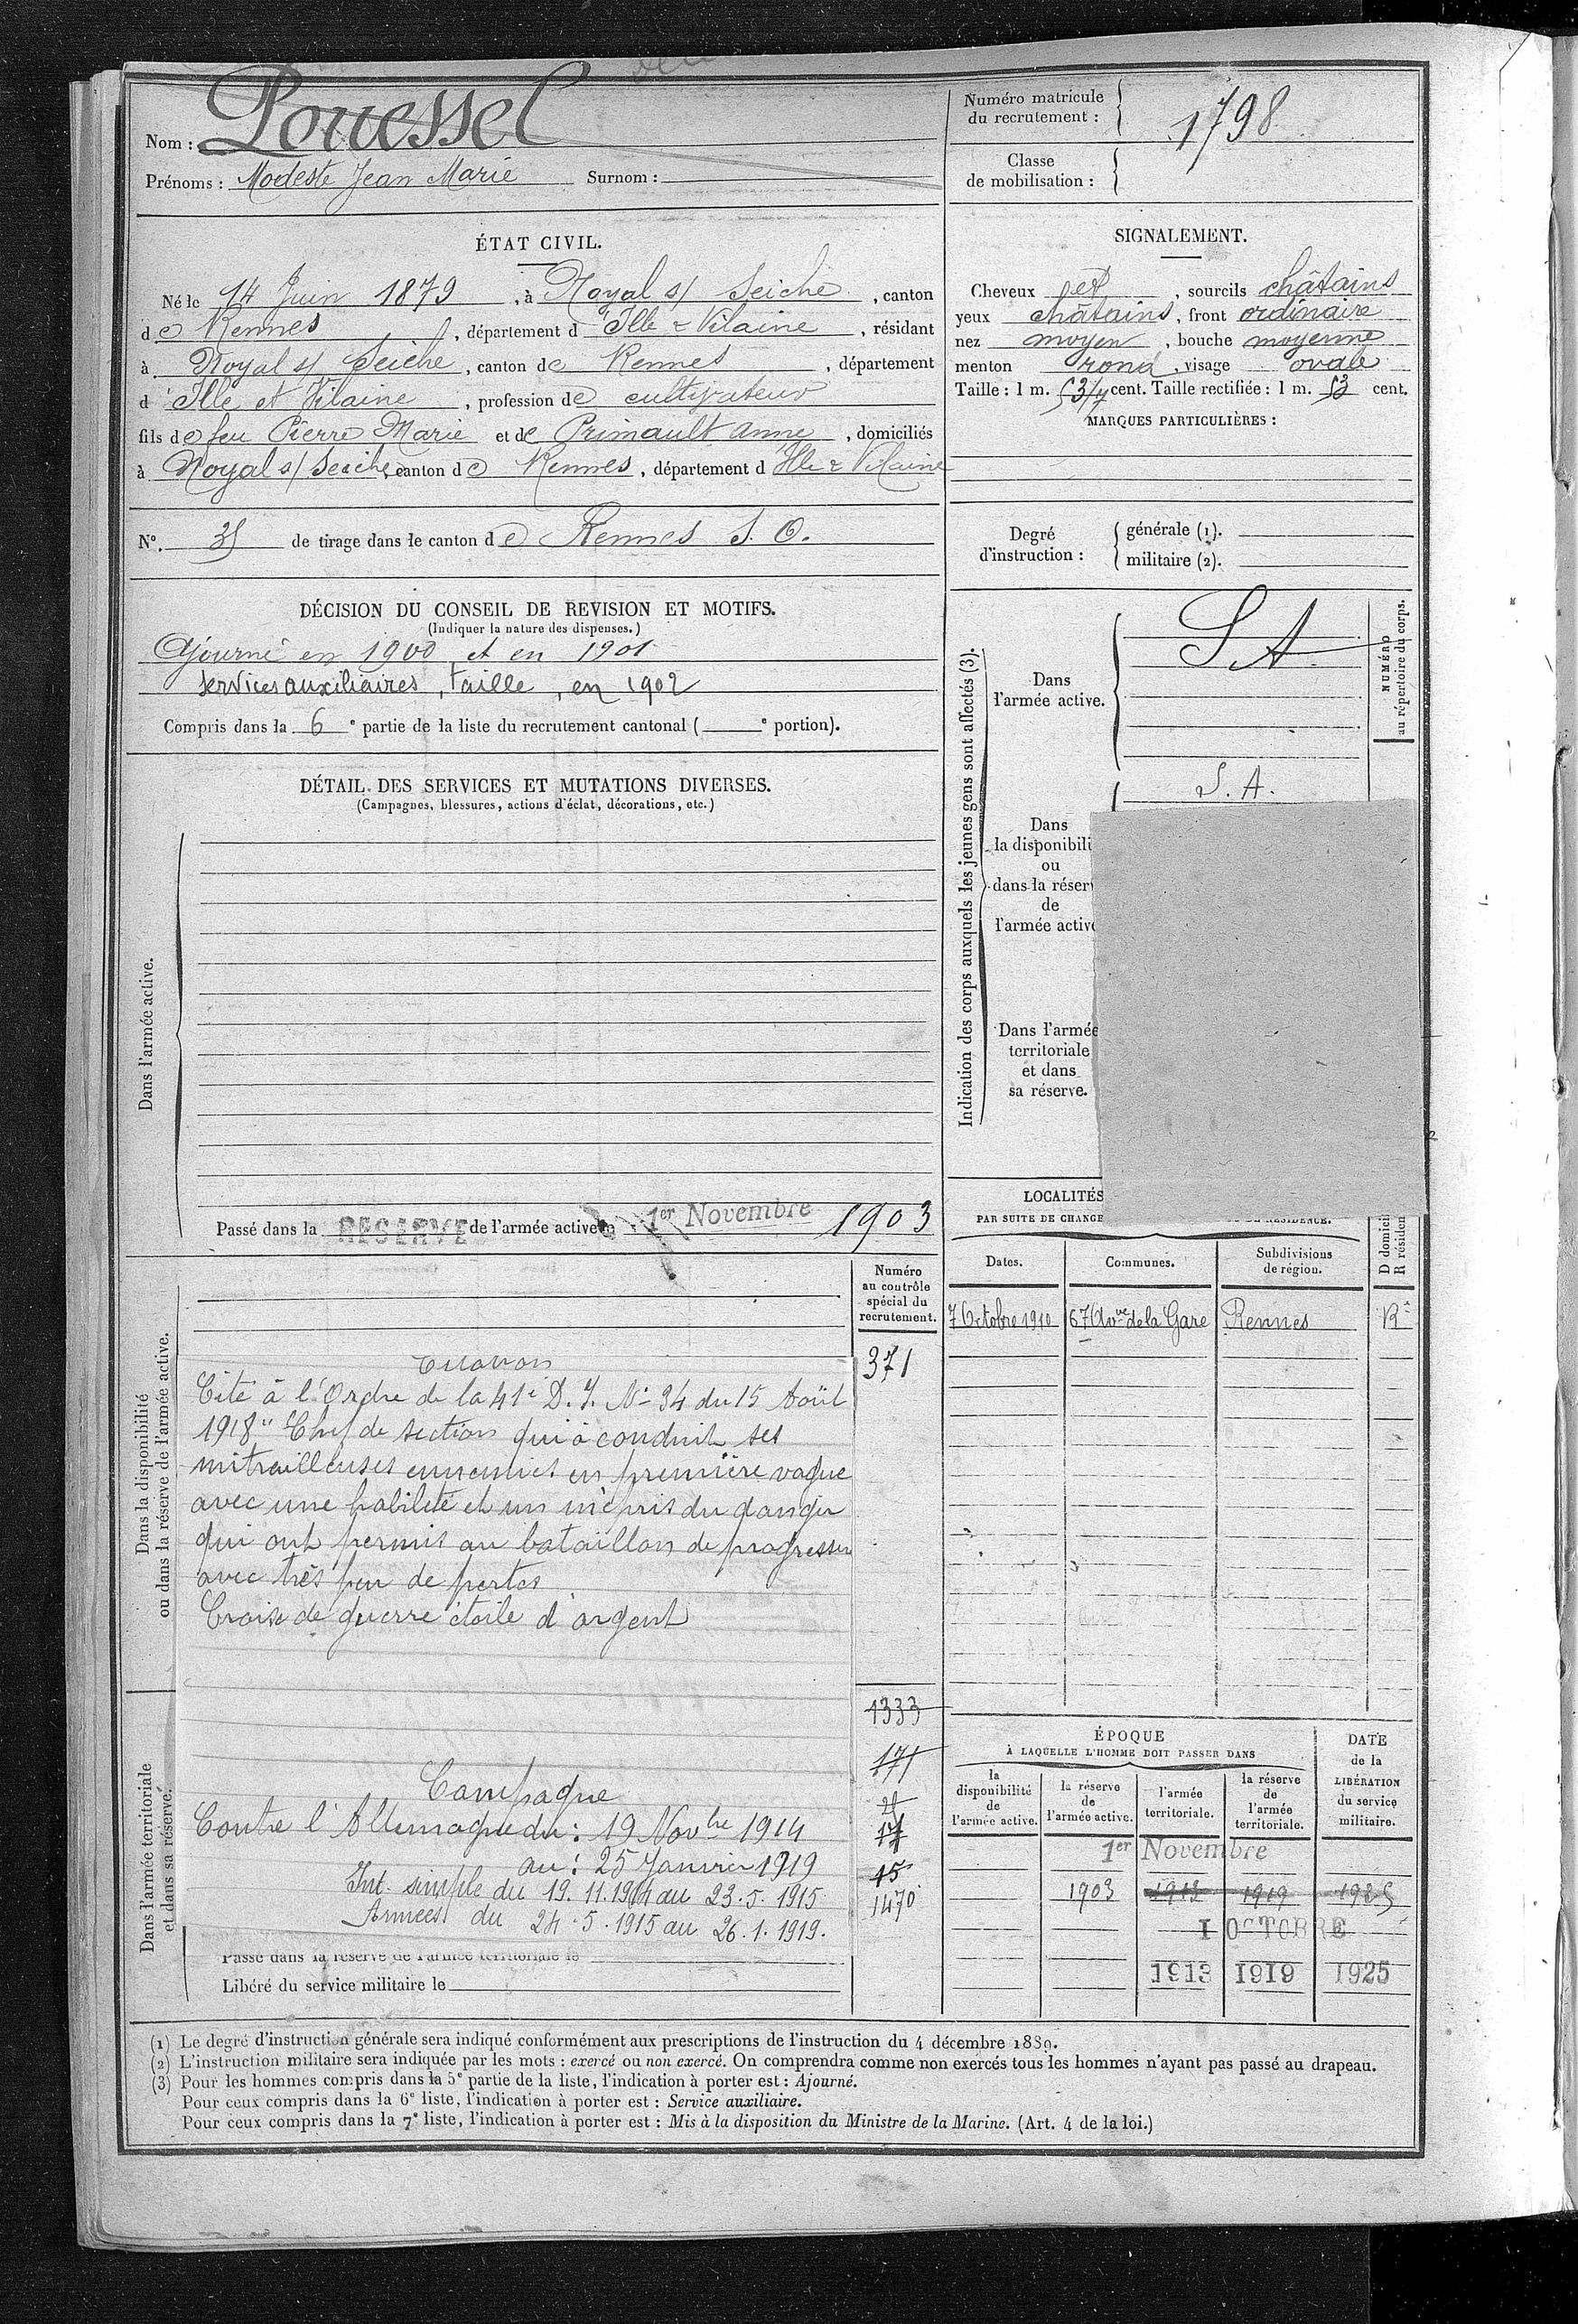 Nom : Pouessel
Prénoms : Modeste Jean Marie Surnom :
Numéro matricule du recrutement : 1798
Classe de mobilisation :
ÉTAT CIVIL.
Né le 14 Juin 1879, à Noyal s/ Seiche, canton
de Rennes, département d'Ille & Vilaine, résidant
à Noyal s/ Seiche, canton de Rennes, département
d'Ille et Vilaine, profession de cultivateur
fils de feu Pierre Marie et de Primault Anne, domiciliés
à Noyal s/ Seiche, canton de Rennes, département d'Ille & Vilaine
N°. 35 de tirage dans le canton de Rennes S. O.
SIGNALEMENT.
Cheveux et, sourcils châtains
yeux châtains, front ordinaire
nez moyen, bouche moyenne
menton rond, visage ovale
Taille : 1 m. 53 1/4 cent. Taille rectifiée : 1 m. 53 cent.
MARQUES PARTICULIÈRES :
Degré d'instruction :
générale (1).
militaire (2).
DÉCISION DU CONSEIL DE REVISION ET MOTIFS.
(Indiquer la nature des dispenses.)
Ajourné en 1900 et en 1901
services auxiliaires, taille, en 1902
Compris dans la 6e partie de la liste du recrutement cantonal ( e portion).
DÉTAIL DES SERVICES ET MUTATIONS DIVERSES.
(Campagnes, blessures, actions d'éclat, décorations, etc.)
Dans l'armée active.
Passé dans la RESERVE de l'armée active 1er Novembre 1903
Indication des corps auxquels les jeunes gens sont affectés (3).
Dans
l'armée active.
S A
NUMÉRO
au répertoire du corps.
S. A.
Dans
la disponibili
ou
dans la réser
de
l'armée activ
Dans l'armée
territoriale
et dans
sa réserve.
LOCALITÉS
PAR SUITE DE CHANGE RÉSIDENCE.
Dates. Communes. Subdivisions de région. D domici R résiden
7 Octobre 1910 67 Avve de la Gare Rennes R
Dans la disponibilité
ou dans la réserve de l'armée active.
Numéro
au contrôle
spécial du
recrutement.
371
Citation
Cité à l'Ordre de la 41e D. I. N° 34 du 15 Août
1918 "Chef de section qui a conduit ses
mitrailleuses ennemies en première vague
avec une habileté et un mépris du danger
qui ont permis au bataillon de progresser
avec très peu de pertes
Croix de guerre étoile d'argent
1333
171
17
15
1470
Dans l'armée territoriale
et dans sa réserve.
Campagne
Contre l'Allemagne du : 19 Novbre 1914
au : 25 Janvier 1919
Int. simple du 19.11.1914 au 23.5.1915
Armées du 24.5.1915 au 26.1.1919.
Passé dans la réserve de l'armée territoriale le
Libéré du service militaire le
ÉPOQUE
À LAQUELLE L'HOMME DOIT PASSER DANS
la disponibilité de l'armée active.
la réserve de l'armée active.
l'armée territoriale.
la réserve de l'armée territoriale.
DATE de la LIBÉRATION du service militaire.
1er Novembre
1903 1913 1919 1925
1 OCTOBRE
1913 1919 1925
(1) Le degré d'instruction générale sera indiqué conformément aux prescriptions de l'instruction du 4 décembre 1889.
(2) L'instruction militaire sera indiquée par les mots : exercé ou non exercé. On comprendra comme non exercés tous les hommes n'ayant pas passé au drapeau.
(3) Pour les hommes compris dans la 5e partie de la liste, l'indication à porter est : Ajourné.
Pour ceux compris dans la 6e liste, l'indication à porter est : Service auxiliaire.
Pour ceux compris dans la 7e liste, l'indication à porter est : Mis à la disposition du Ministre de la Marine. (Art. 4 de la loi.)